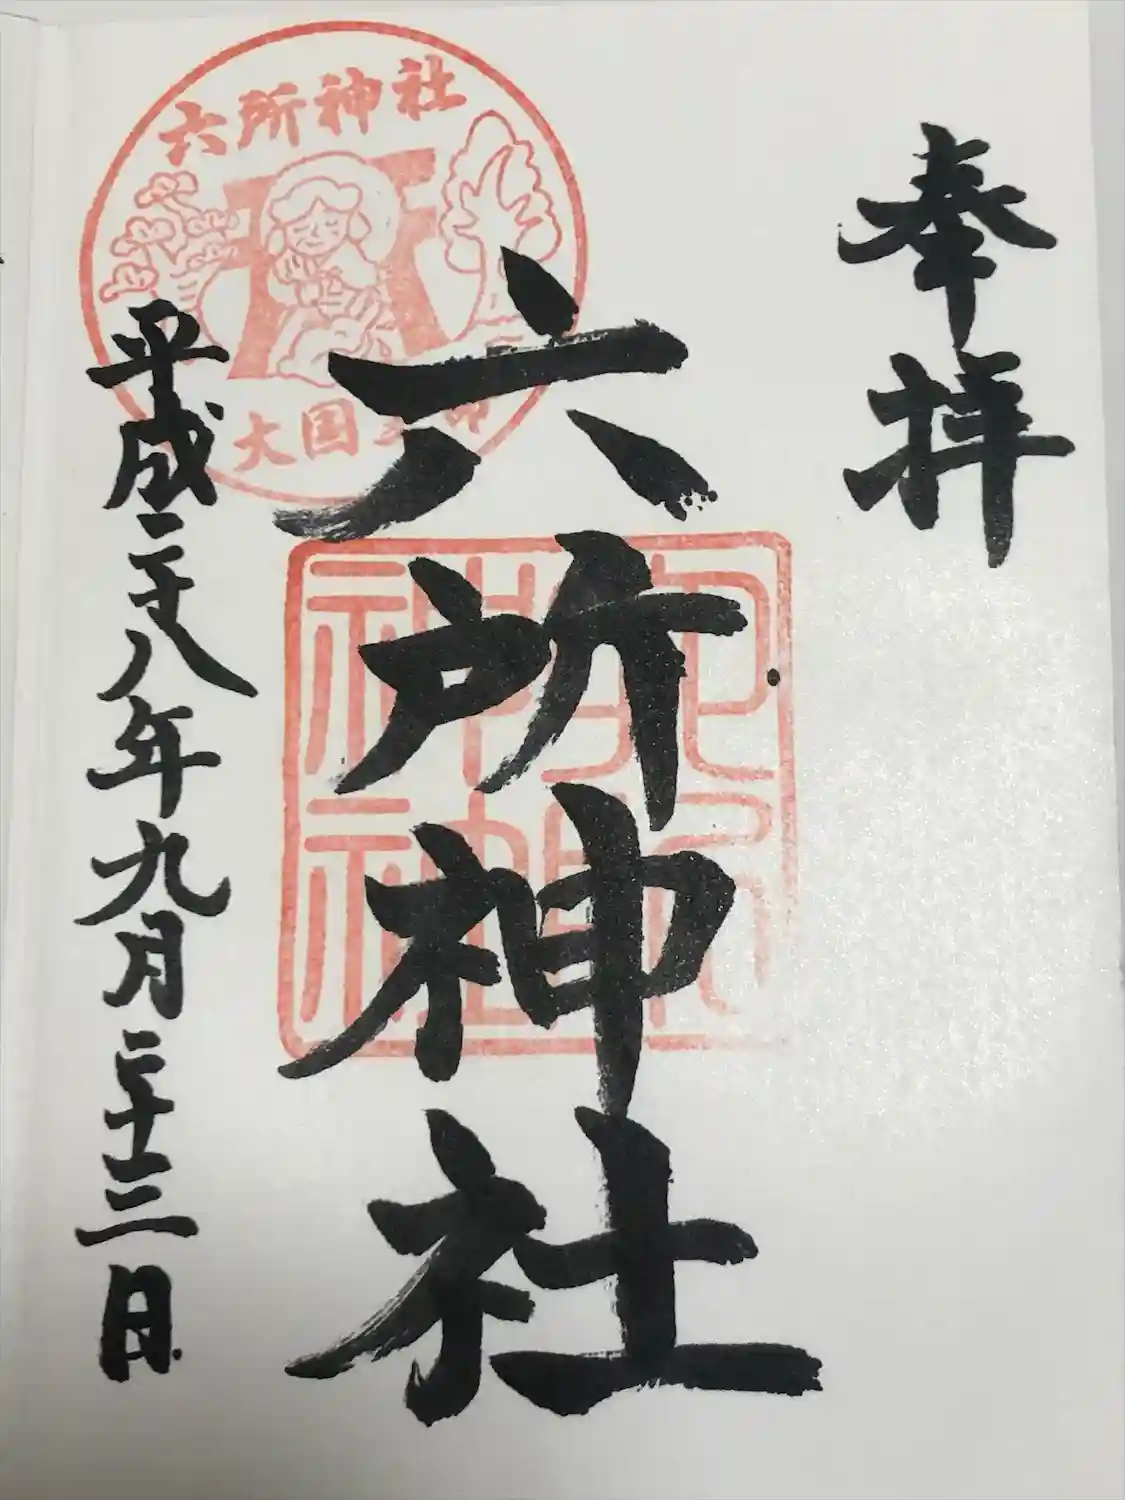 奉拝
六所神社
平成二十八年九月二十三日
六所神社
大国主命
六所神社